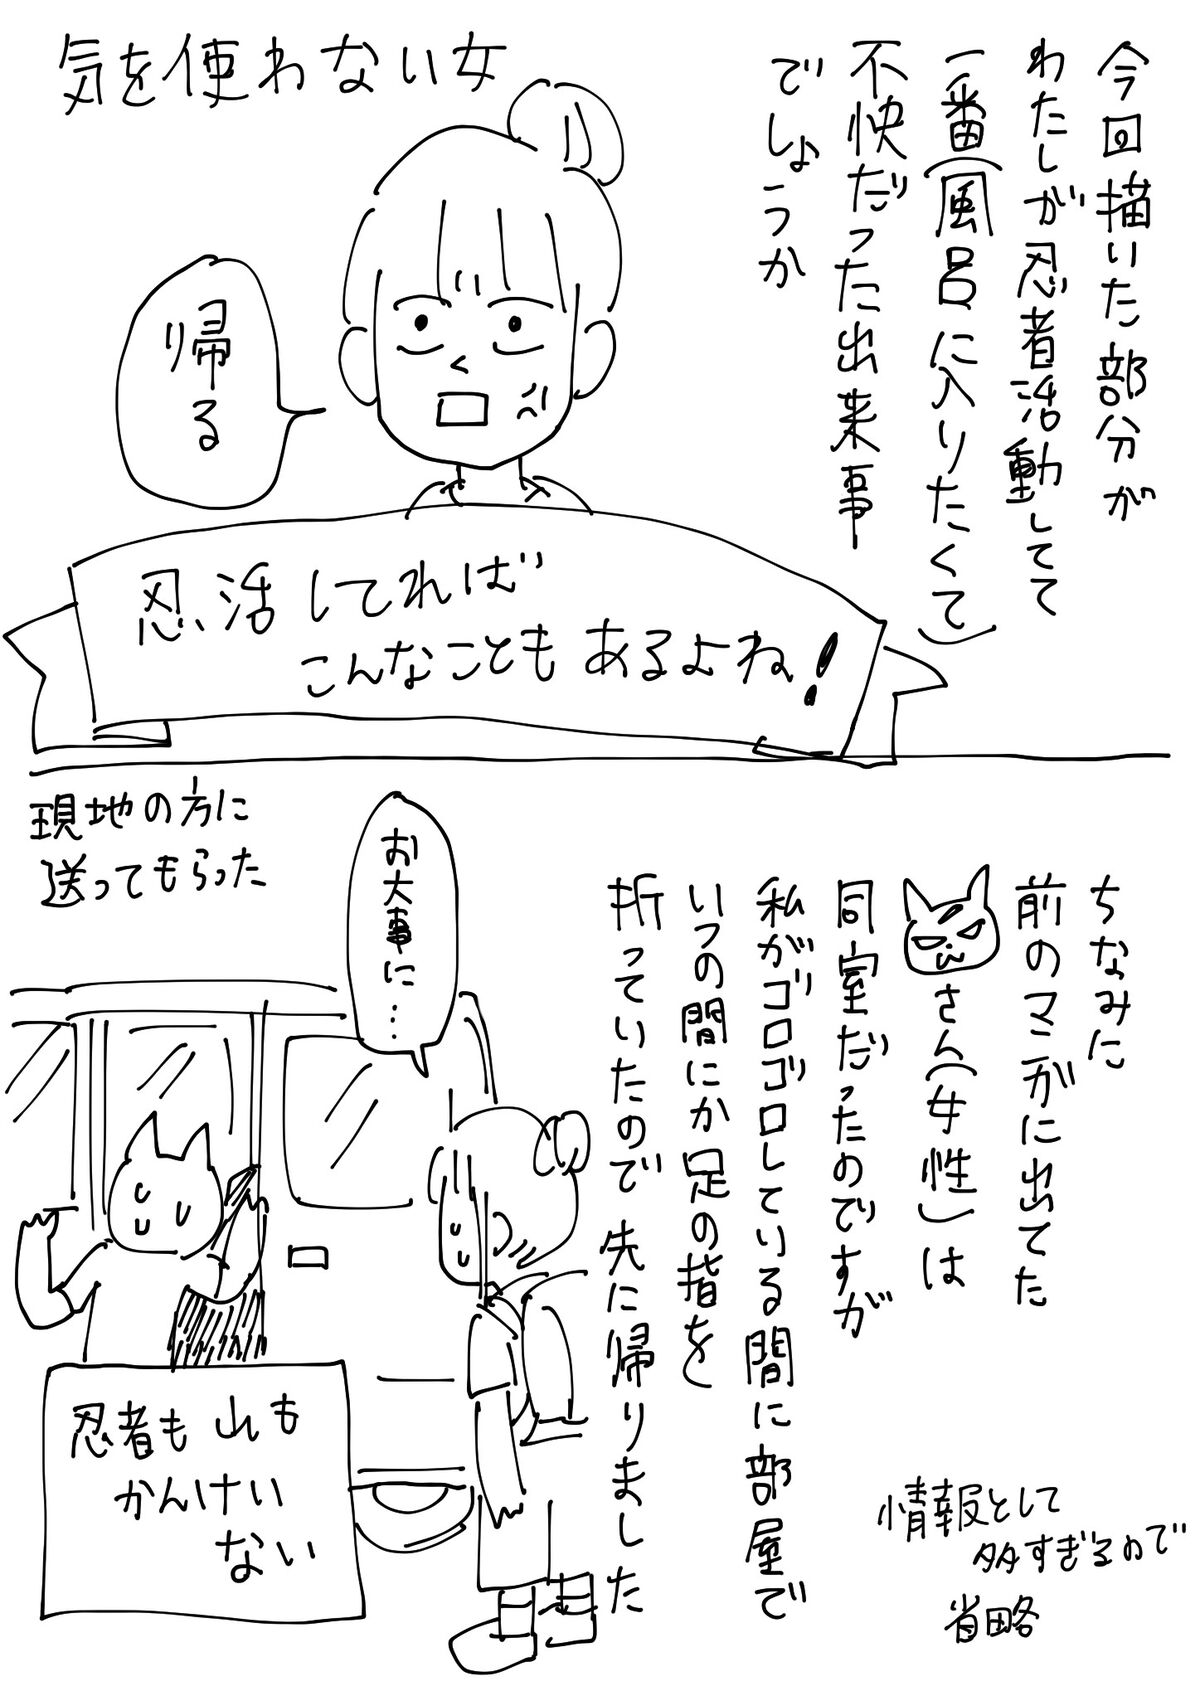 今回描いた部分が
わたしが忍者活動してて
一番(風呂に入りたくて)
不快だった出来事
でしょうか
気を使わない女
帰る
忍活してれば
こんなこともあるよね!
ちなみに
前のマンガに出てた
さん(女性)は
同室だったのですが
私がゴロゴロしている間に部屋で
いつの間にか足の指を
折っていたので先に帰りました
情報として
多すぎるので
省略
お大事に…
現地の方に
送ってもらった
忍者も山も
かんけい
ない